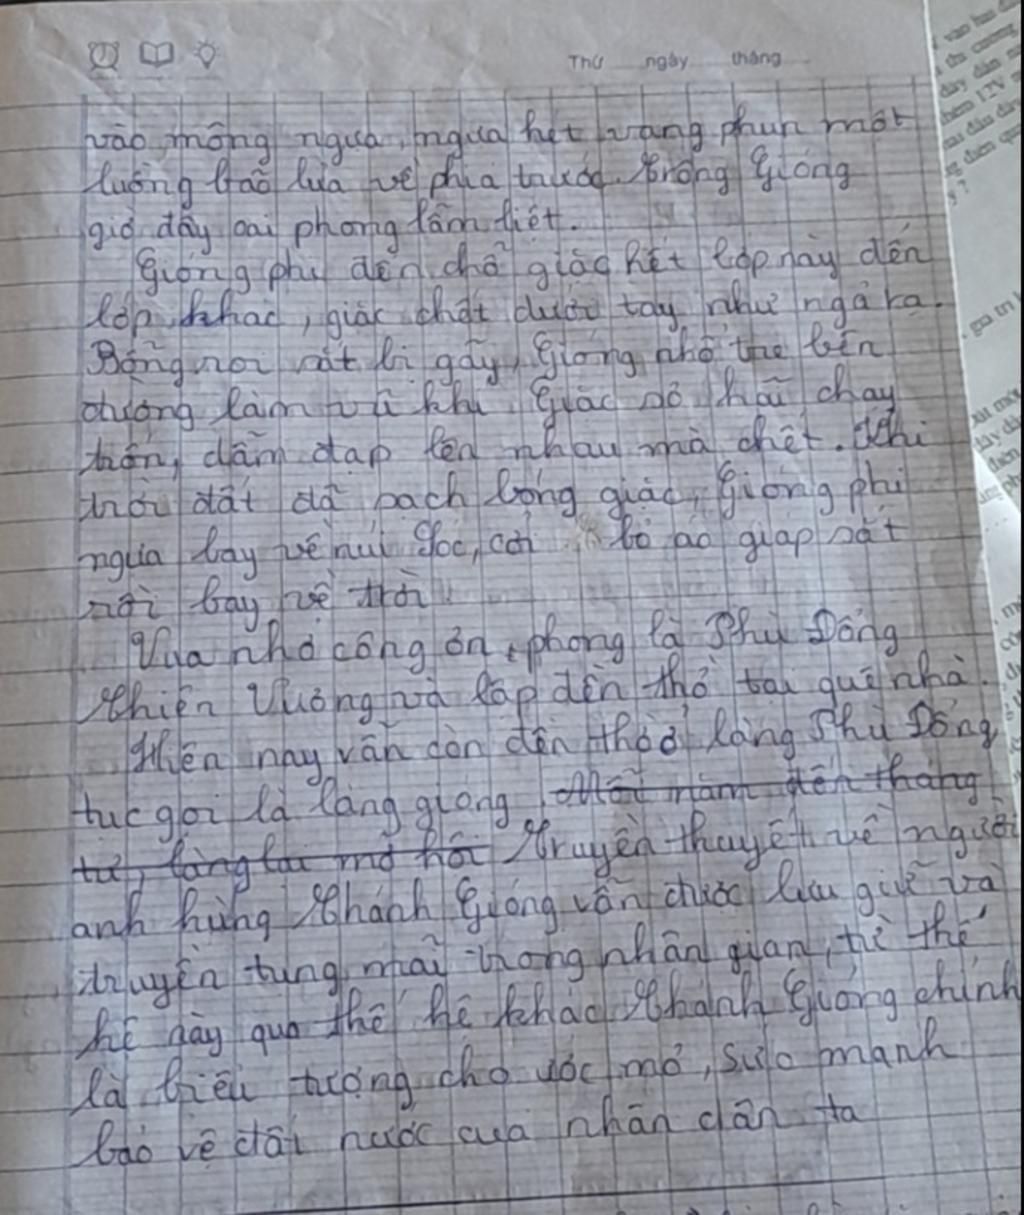 Thứ ngày tháng
vào mông ngựa, ngựa hét vang phun một
luồng bão lửa về phía trước. Trông Gióng
giờ đây oai phong lẫm liệt.
Gióng phi đến chỗ giặc hết lớp này đến
lớp khác, giặc chết dưới tay như ngả rạ.
Bỗng roi sắt bị gãy, Gióng nhổ tre bên
đường làm vũ khí. Giặc sợ hãi chạy
trốn, dẫm đạp lên nhau mà chết. Khi
trời đất đã sạch bóng giặc, Gióng phi
ngựa bay về núi Sóc, cởi bỏ áo giáp sắt
rồi bay về trời
Vua nhớ công ơn, phong là Phù Đổng
Thiên Vương và lập đền thờ tại quê nhà.
Hiện nay vẫn còn đền thờ ở làng Phù Đổng
tục gọi là làng gióng. Mỗi năm đến tháng
tư, làng lại mở hội Truyền thuyết về người
anh hùng Thánh Gióng vẫn được lưu giữ và
truyền tụng mãi trong nhân gian, từ thế
hệ này qua thế hệ khác Thánh Gióng chính
là biểu tượng cho ước mơ, sức mạnh
bảo vệ đất nước của nhân dân ta